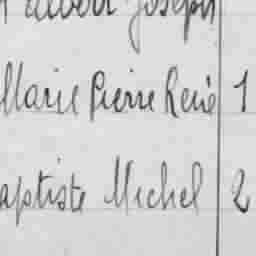 Albert Joseph
Marie Pierre René 1
aptiste Michel 2